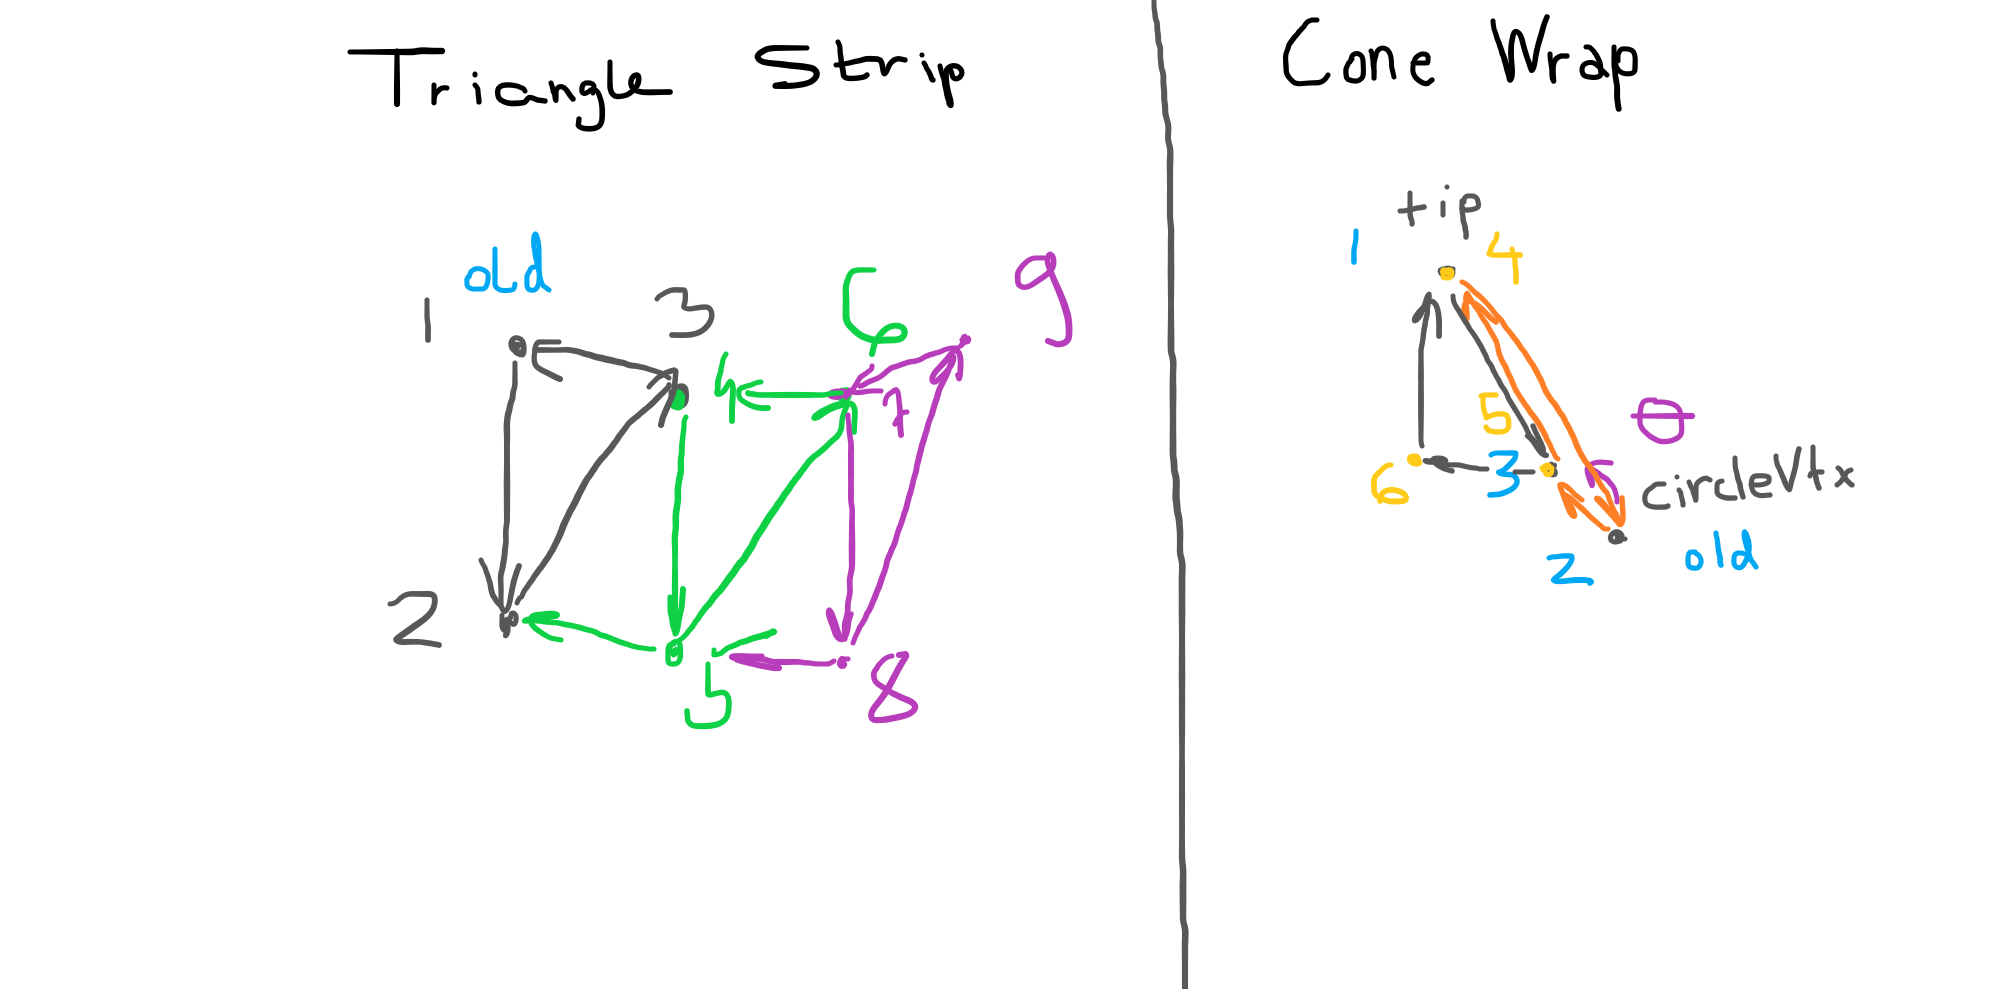 Triangle Strip
old
1
3
6
9
4
7
2
5
8
Cone Wrap
tip
1
4
θ
5
6
3
circleVtx
2
old